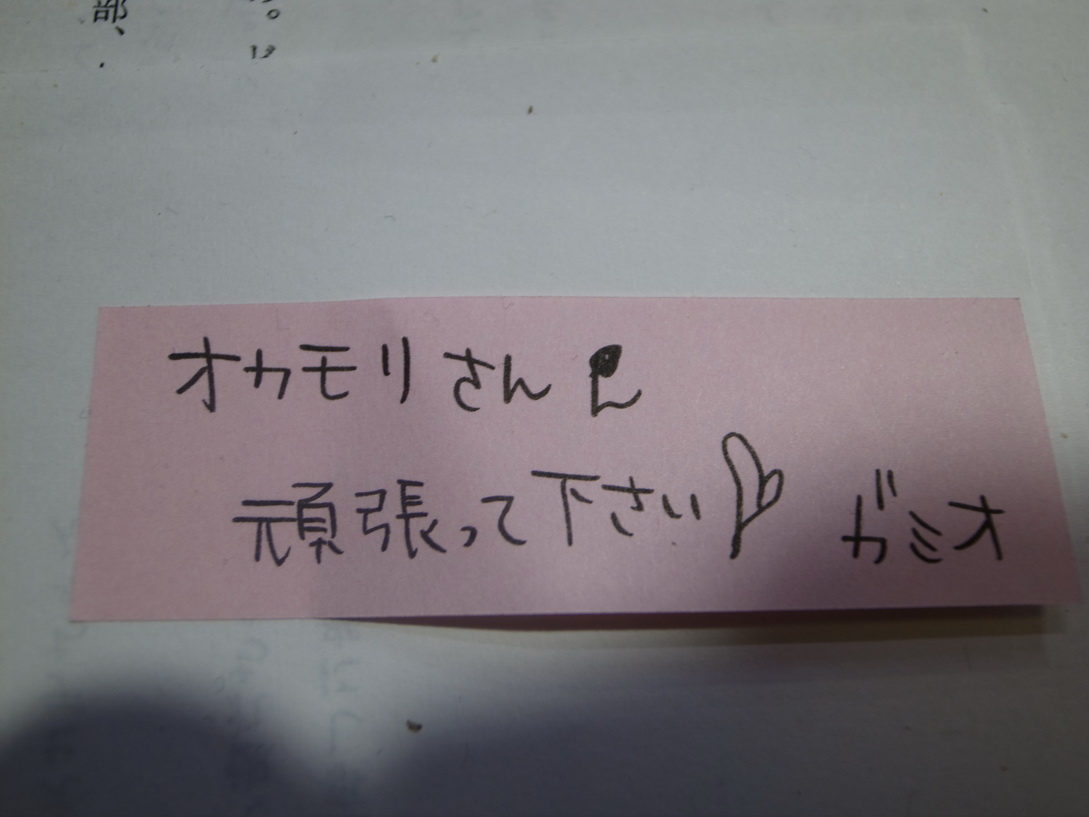 部、
。
オカモリさん
頑張って下さい♡ ガミオ